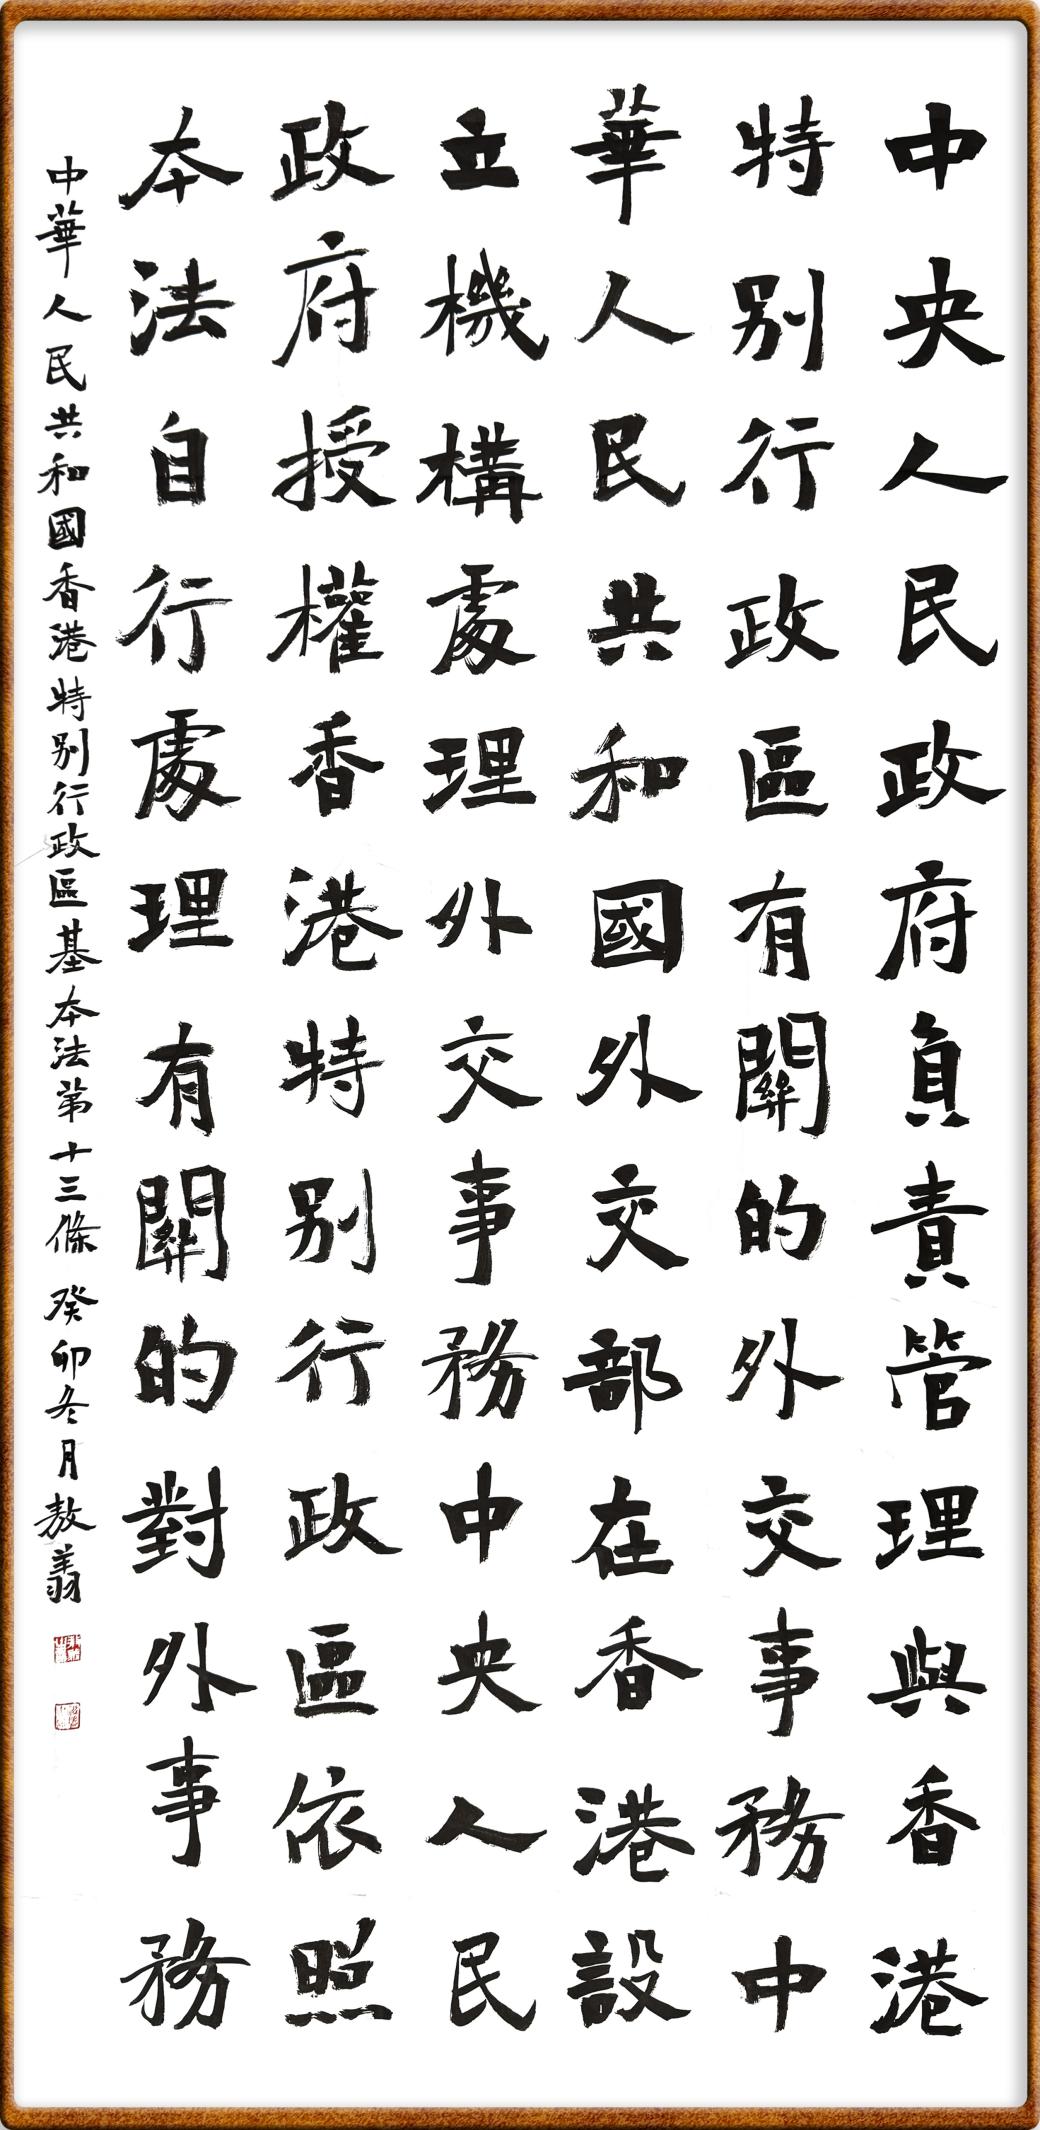 中央人民政府負責管理與香港
特别行政區有關的外交事務中
華人民共和國外交部在香港設
立機構處理外交事務中央人民
政府授權香港特别行政區依照
本法自行處理有關的對外事務
中華人民共和國香港特别行政區基本法第十三條 癸卯冬月敖翥